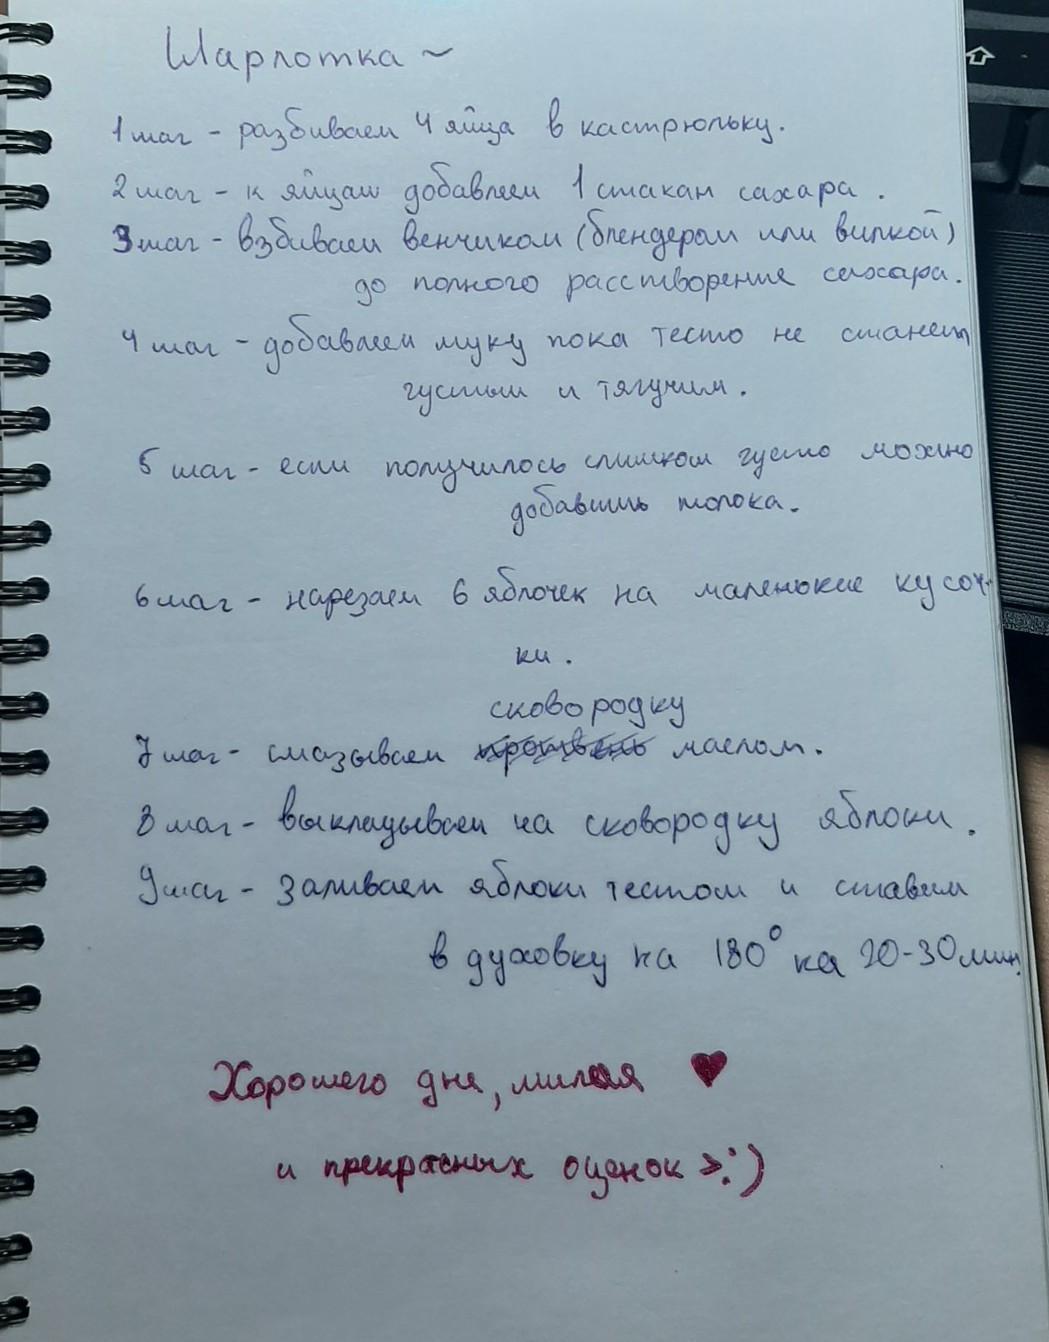 Шарлотка ~
1 шаг - разбиваем 4 яйца в кастрюльку.
2 шаг - к яйцам добавляем 1 стакан сахара.
3 шаг - взбиваем венчиком (блендером или вилкой)
до полного расстворение сахара.
4 шаг - добавляем муку пока тесто не станет
густым и тягучим.
5 шаг - если получилось слишком густо можно
добавить молока.
6 шаг - нарезаем 6 яблочек на маленькие кусоч-
ки.
сковородку
7 шаг - смазываем противень маслом.
8 шаг - выкладываем на сковородку яблоки.
9 шаг - заливаем яблоки тестом и ставим
в духовку на 180° на 20-30 мин.
Хорошего дня, милая ♥
и прекрасных оценок >:)